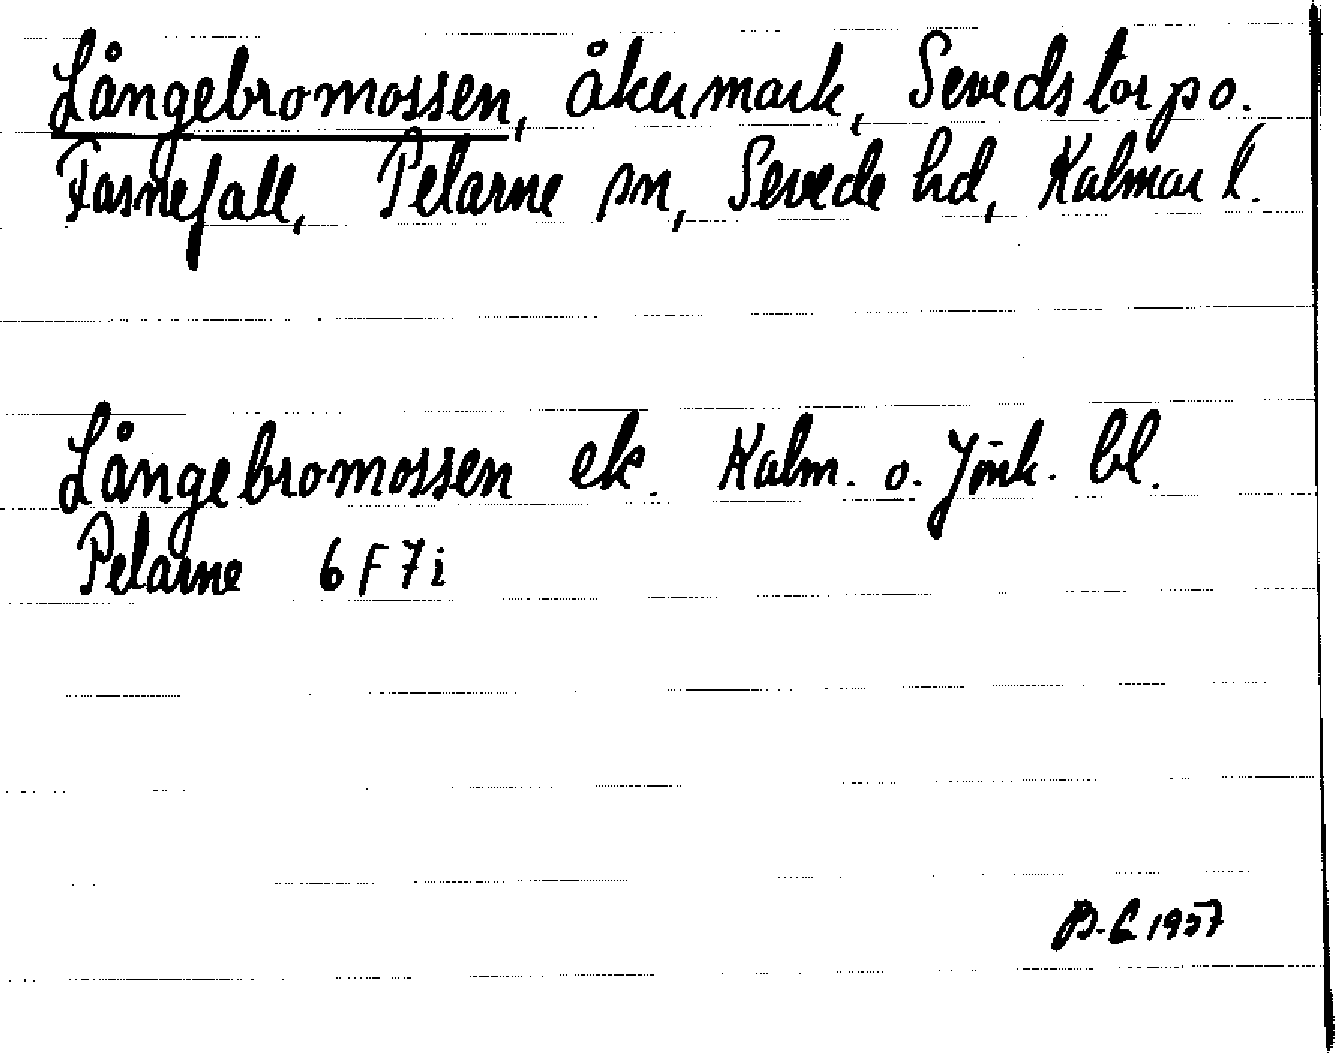 Långebromossen, åkermark, Sevedstorp o.
Fasnefall, Pelarne sn, Sevede hd, Kalmar l.
Långebromossen ek. Kalm. o. Jönk. bl.
Pelarne 6F7i
1957